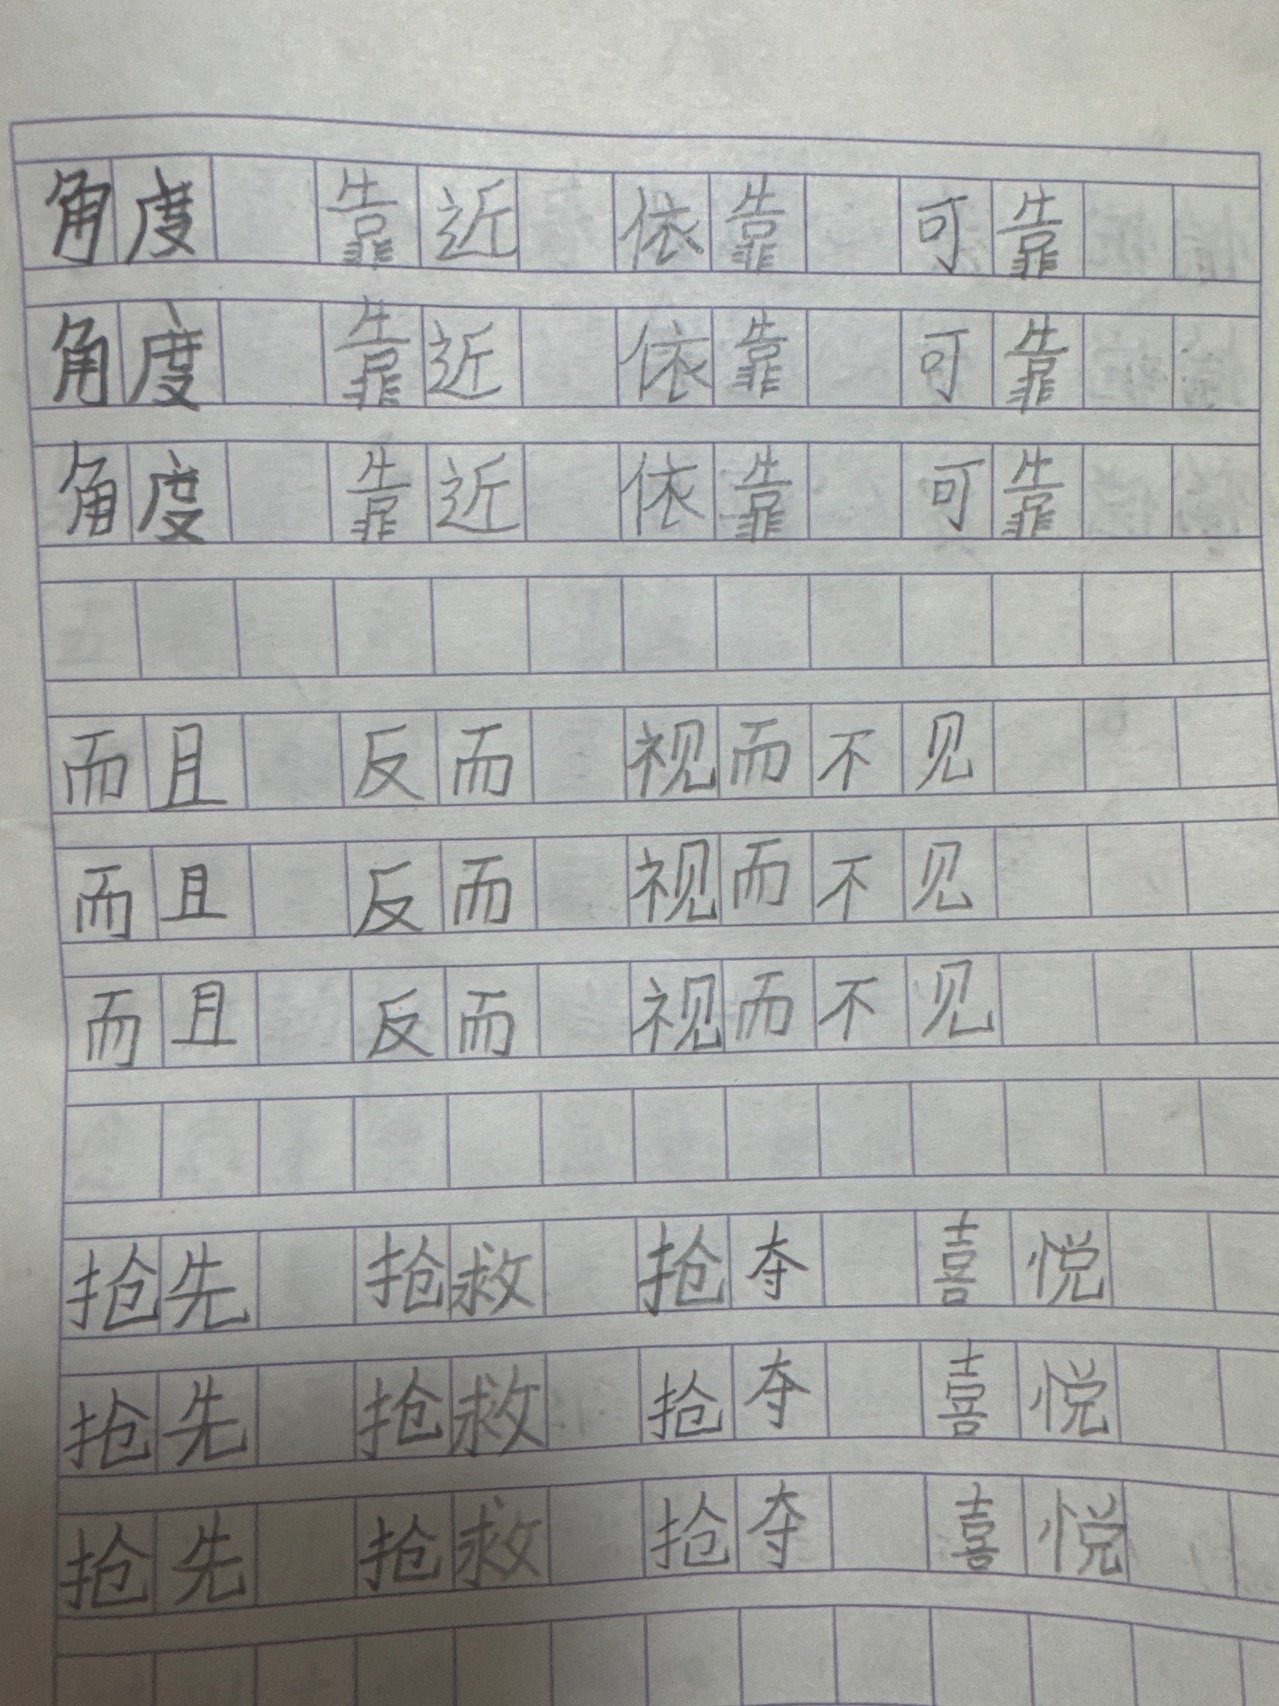 角度 靠近 依靠 可靠
角度 靠近 依靠 可靠
角度 靠近 依靠 可靠
而且 反而 视而不见
而且 反而 视而不见
而且 反而 视而不见
抢先 抢救 抢夺 喜悦
抢先 抢救 抢夺 喜悦
抢先 抢救 抢夺 喜悦